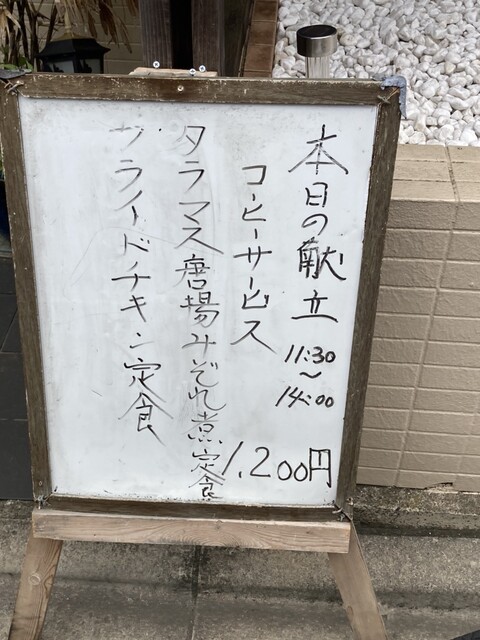 本日の献立 11:30～14:00
コーヒーサービス
1,200円
タラマス唐揚みぞれ煮定食
フライドチキン定食